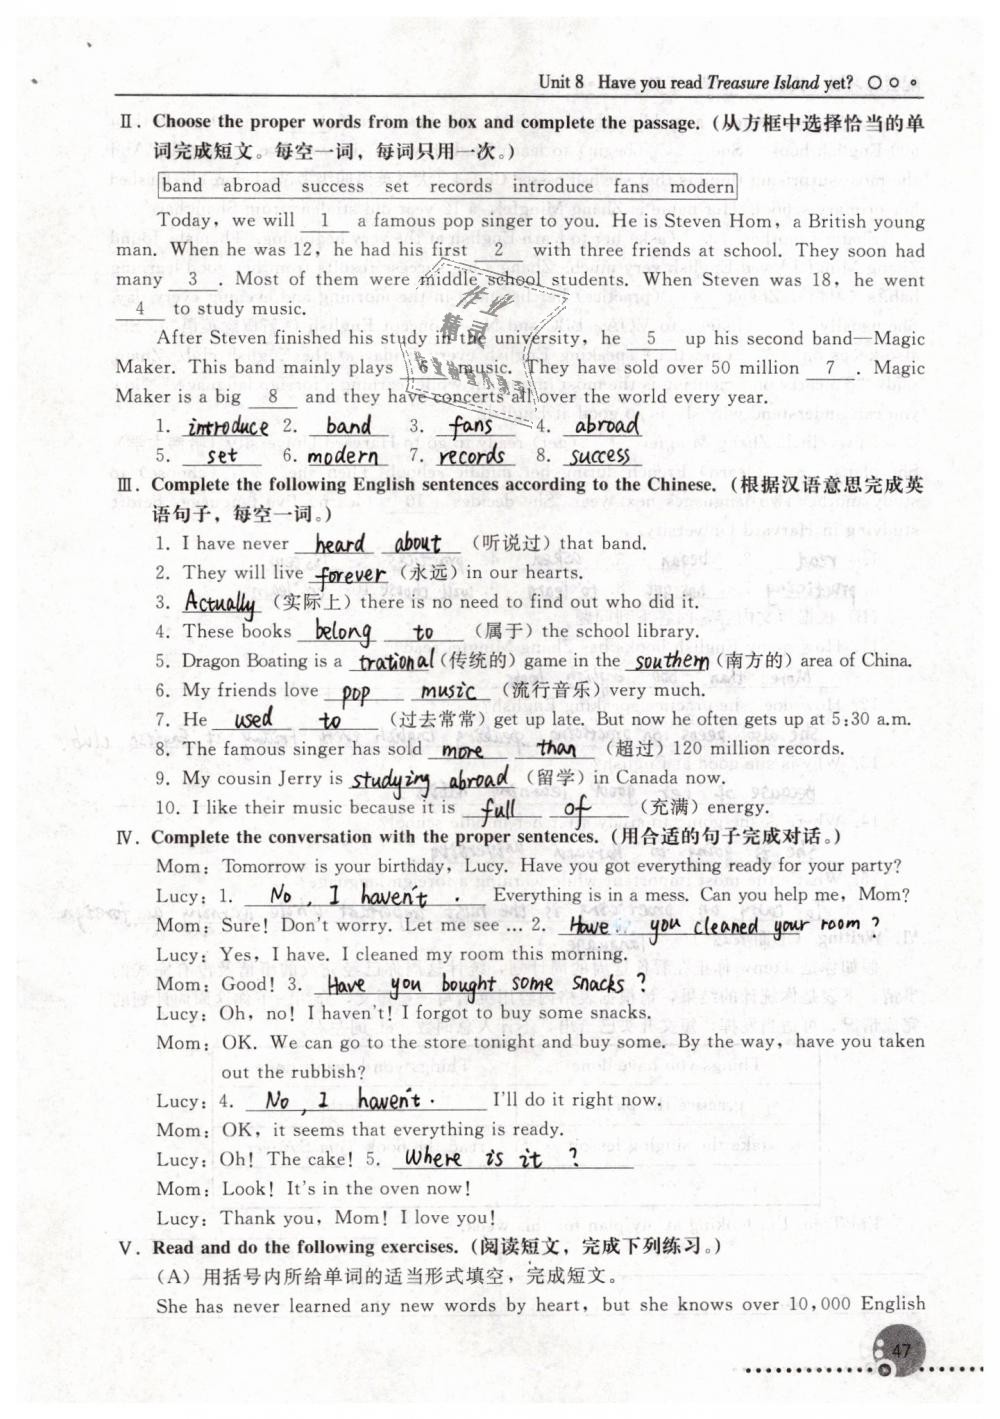 Unit 8 Have you read Treasure Island yet?
Ⅱ. Choose the proper words from the box and complete the passage. (从方框中选择恰当的单
词完成短文。每空一词，每词只用一次。)
band abroad success set records introduce fans modern
Today, we will 1 a famous pop singer to you. He is Steven Hom, a British young
man. When he was 12, he had his first 2 with three friends at school. They soon had
many 3 . Most of them were middle school students. When Steven was 18, he went
4 to study music.
After Steven finished his study in the university, he 5 up his second band—Magic
Maker. This band mainly plays 6 music. They have sold over 50 million 7 . Magic
Maker is a big 8 and they have concerts all over the world every year.
1. introduce 2. band 3. fans 4. abroad
5. set 6. modern 7. records 8. success
Ⅲ. Complete the following English sentences according to the Chinese. (根据汉语意思完成英
语句子，每空一词。)
1. I have never heard about (听说过) that band.
2. They will live forever (永远) in our hearts.
3. Actually (实际上) there is no need to find out who did it.
4. These books belong to (属于) the school library.
5. Dragon Boating is a trational (传统的) game in the southern (南方的) area of China.
6. My friends love pop music (流行音乐) very much.
7. He used to (过去常常) get up late. But now he often gets up at 5:30 a.m.
8. The famous singer has sold more than (超过) 120 million records.
9. My cousin Jerry is studying abroad (留学) in Canada now.
10. I like their music because it is full of (充满) energy.
Ⅳ. Complete the conversation with the proper sentences. (用合适的句子完成对话。)
Mom: Tomorrow is your birthday, Lucy. Have you got everything ready for your party?
Lucy: 1. No, I haven't. Everything is in a mess. Can you help me, Mom?
Mom: Sure! Don't worry. Let me see ... 2. Have you cleaned your room ?
Lucy: Yes, I have. I cleaned my room this morning.
Mom: Good! 3. Have you bought some snacks ?
Lucy: Oh, no! I haven't! I forgot to buy some snacks.
Mom: OK. We can go to the store tonight and buy some. By the way, have you taken
out the rubbish?
Lucy: 4. No, I haven't. I'll do it right now.
Mom: OK, it seems that everything is ready.
Lucy: Oh! The cake! 5. Where is it ?
Mom: Look! It's in the oven now!
Lucy: Thank you, Mom! I love you!
Ⅴ. Read and do the following exercises. (阅读短文，完成下列练习。)
(A) 用括号内所给单词的适当形式填空，完成短文。
She has never learned any new words by heart, but she knows over 10,000 English
47
作业
精灵